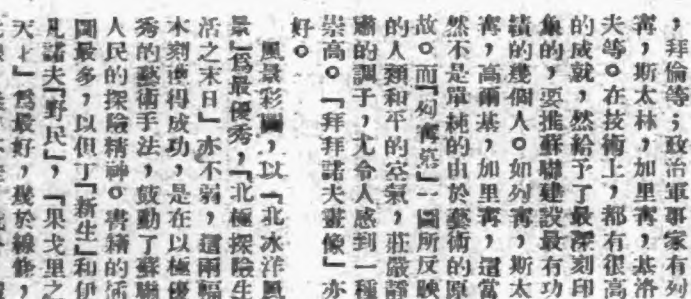 ，拜倫等；政治軍事家有列
寗，斯太林，加里寗，基洛
夫等。在技術上，都有很高
的成就，然給予了最深刻印
象的，要推蘇聯建設最有功
績的幾個人。如列寗，斯太
寗，高爾基，加里寗，這當
然不是單純的由於藝術的原
故。而『列寗墓』一圖所反映
的人類和平的空氣，莊嚴靜
肅的調子，尤令人感到一種
崇高。『拜拜諾夫畫像』亦
好。
風景彩圖，以『北冰洋風
景』爲最優秀，『北極探險生
活之末日』亦不弱，這兩幅
木刻獲得成功，是在以極優
秀的藝術手法，鼓動了蘇聯
人民的探險精神。書籍的插
圖最多，以但丁『新生』和伊
凡諾夫『野民』，『果戈里之
天才』爲最好，幾於線條，